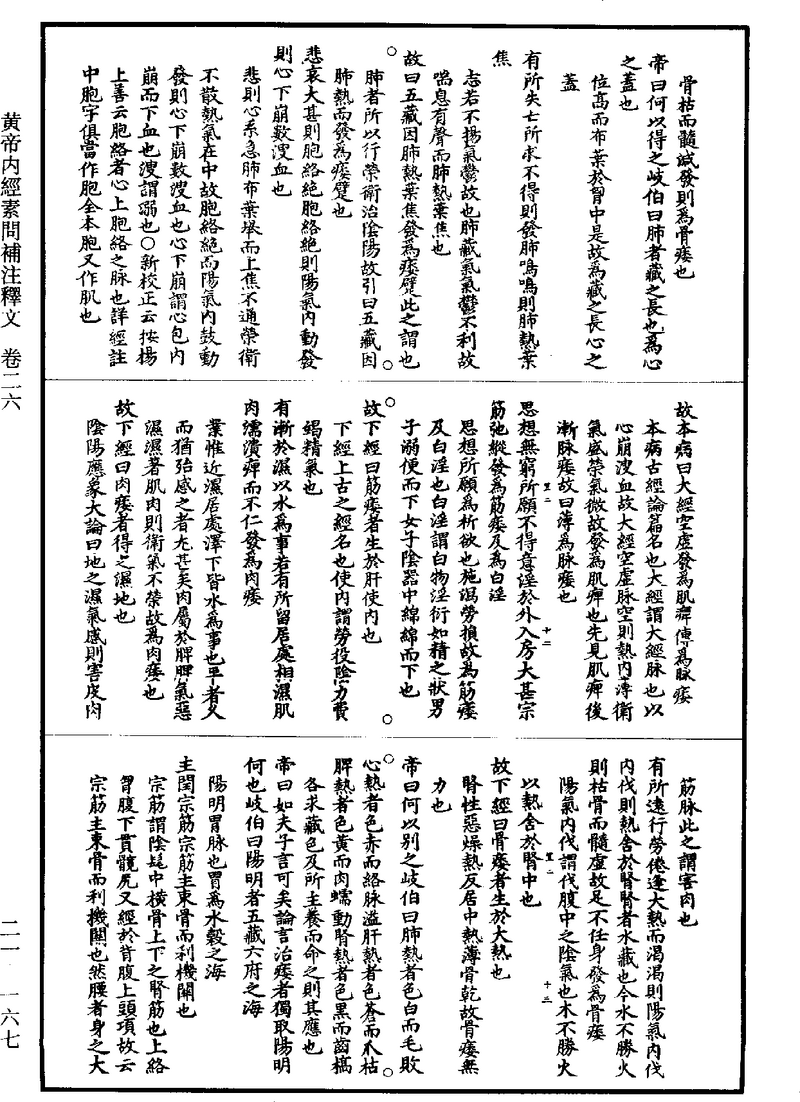 骨枯而髓減發則爲骨痿也
帝曰何以得之岐伯曰肺者藏之長也爲心
之蓋也
位高而布葉於胷中是故爲藏之長心之
蓋
有所失亡所求不得則發肺鳴鳴則肺熱葉
焦
志若不揚氣鬱故也肺藏氣氣鬱不利故
喘息有聲而肺熱葉焦也
故曰五藏因肺熱葉焦發爲痿躄此之謂也
肺者所以行榮衛治陰陽故引曰五藏因
肺熱而發爲痿躄也
悲哀大甚則胞絡絕胞絡絕則陽氣內動發
則心下崩數溲血也
悲則心系急肺布葉舉而上焦不通榮衛
不散熱氣在中故胞絡絕而陽氣內鼓動
發則心下崩數溲血也心下崩謂心包內
崩而下血也溲謂溺也○新校正云按楊
上善云胞絡者心上胞絡之脉也詳經註
中胞字俱當作胞全本胞又作肌也
故本病曰大經空虛發爲肌痺傳爲脉痿
本病古經論篇名也大經謂大經脉也以
心崩溲血故大經空虛脉空則熱內薄衛
氣盛榮氣微故發爲肌痺也先見肌痺後
漸脉痿故曰薄爲脉痿也
思想無窮所願不得意淫於外入房大甚宗
筋弛縱發爲筋痿及爲白淫
思想所願爲祈欲也施瀉勞損故爲筋痿
及白淫也白淫謂白物淫衍如精之狀男
子溺便而下女子陰器中綿綿而下也
故下經曰筋痿者生於肝使內也
下經上古之經名也使內謂勞役陰力費
竭精氣也
有漸於濕以水爲事若有所留居處相濕肌
肉濡漬痺而不仁發爲肉痿
業惟近濕居處澤下皆水爲事也平者久
而猶殆感之者尤甚矣肉屬於脾脾氣惡
濕濕著肌肉則衛氣不榮故爲肉痿也
故下經曰肉痿者得之濕地也
陰陽應象大論曰地之濕氣感則害皮肉
筋脉此之謂害肉也
有所遠行勞倦逢大熱而渴渴則陽氣內伐
內伐則熱舍於腎腎者水藏也今水不勝火
則枯骨而髓虛故足不任身發爲骨痿
陽氣內伐謂伐腹中之陰氣也水不勝火
以熱舍於腎中也
故下經曰骨痿者生於大熱也
腎性惡燥熱反居中熱薄骨乾故骨痿無
力也
帝曰何以別之岐伯曰肺熱者色白而毛敗
心熱者色赤而絡脉溢肝熱者色蒼而爪枯
脾熱者色黃而肉蠕動腎熱者色黑而齒槁
各求藏色及所主養而命之則其應也
帝曰如夫子言可矣論言治痿者獨取陽明
何也岐伯曰陽明者五藏六府之海
陽明胃脉也胃爲水穀之海
主閏宗筋宗筋主束骨而利機關也
宗筋謂陰髦中橫骨上下之豎筋也上絡
胷腹下貫髖尻又經於背腹上頭項故云
宗筋主束骨而利機關也然腰者身之大
黄帝内經素問補注釋文 卷二六
二一·一六七